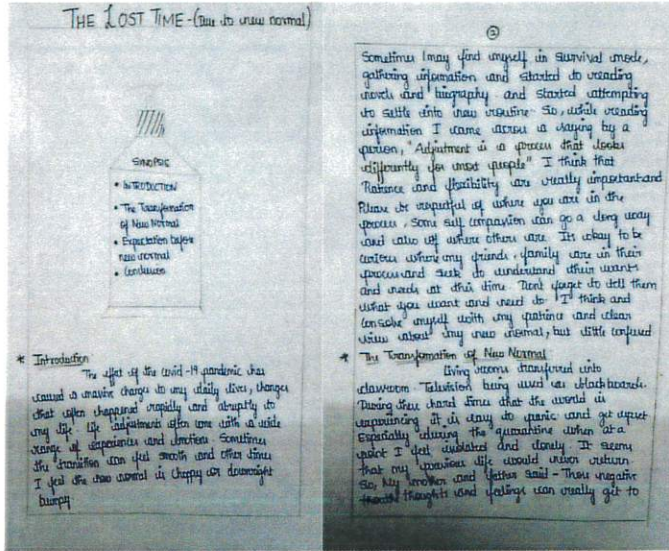 THE LOST TIME - (Due to new normal)
SYNOPSIS
• INTRODUCTION
• The Transformation
of New Normal
• Expectation before
new normal
• Conclusion
* Introduction
The effect of the covid-19 pandemic has
caused a massive change to my daily lives, changes
that often happened rapidly and abruptly to
my life. Life adjustments often come with a wide
range of experiences and emotions. Sometimes
the transition can feel smooth and other times
I feel the new normal is choppy or downright
bumpy
②
Sometimes I may find myself in survival mode,
gathering information and started to reading
novels and biography and started attempting
to settle into new routine. So, while reading
information I came across a saying by a
person, "Adjustment is a process that looks
differently for most people" I think that
Patience and flexibility are really important and
Please be respectful of where you are in the
process, Some self compassion can go a long way
and also of where others are. Its okay to be
curious where my friends, family are in their
process and seek to understand their wants
and needs at this time. Dont forget to tell them
what you want and need to. I think and
console myself with my patience and clear
view about my new normal, but little confused
* The Transfomation of New Normal
Living rooms transferred into
classroom. Television being used as blackboards.
During these hard times that the world is
experiencing it is easy to panic and get upset.
Especially during the quarantine when at a
point I feel isolated and lonely. It seems
that my previous life would never return.
So, My mother and father said - These negative
thoughts and feelings can really get to